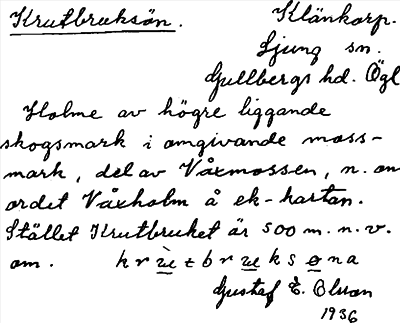 Krutbruksön.
Klänkorp.
Ljung sn.
Gullbergs hd. Ögl
Holme av högre liggande
skogsmark i omgivande moss-
mark, del av Våxmossen, n. om
ordet Våxholm å ek-kartan.
Stället Krutbruket är 500 m. n. v.
om. krùtbruksøna
Gustaf E. Olsson
1936